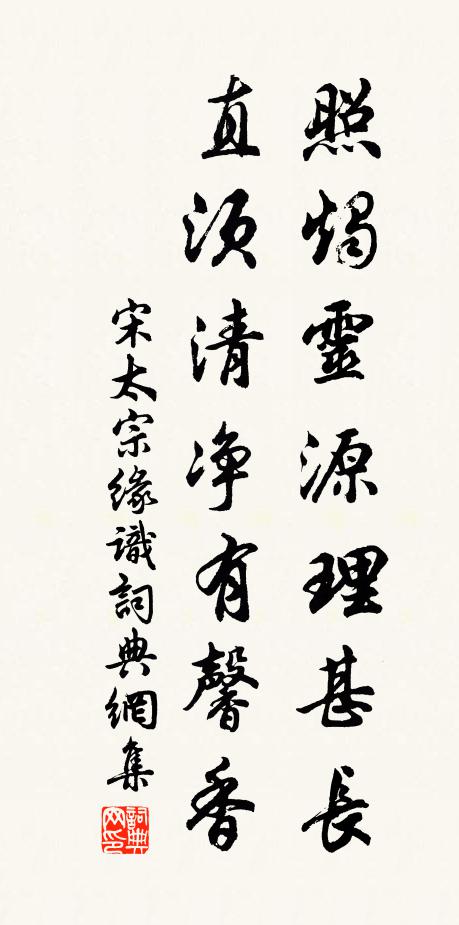 照燭靈源理甚長
直須清净有馨香
宋太宗緣識詞典網集
詞典网印